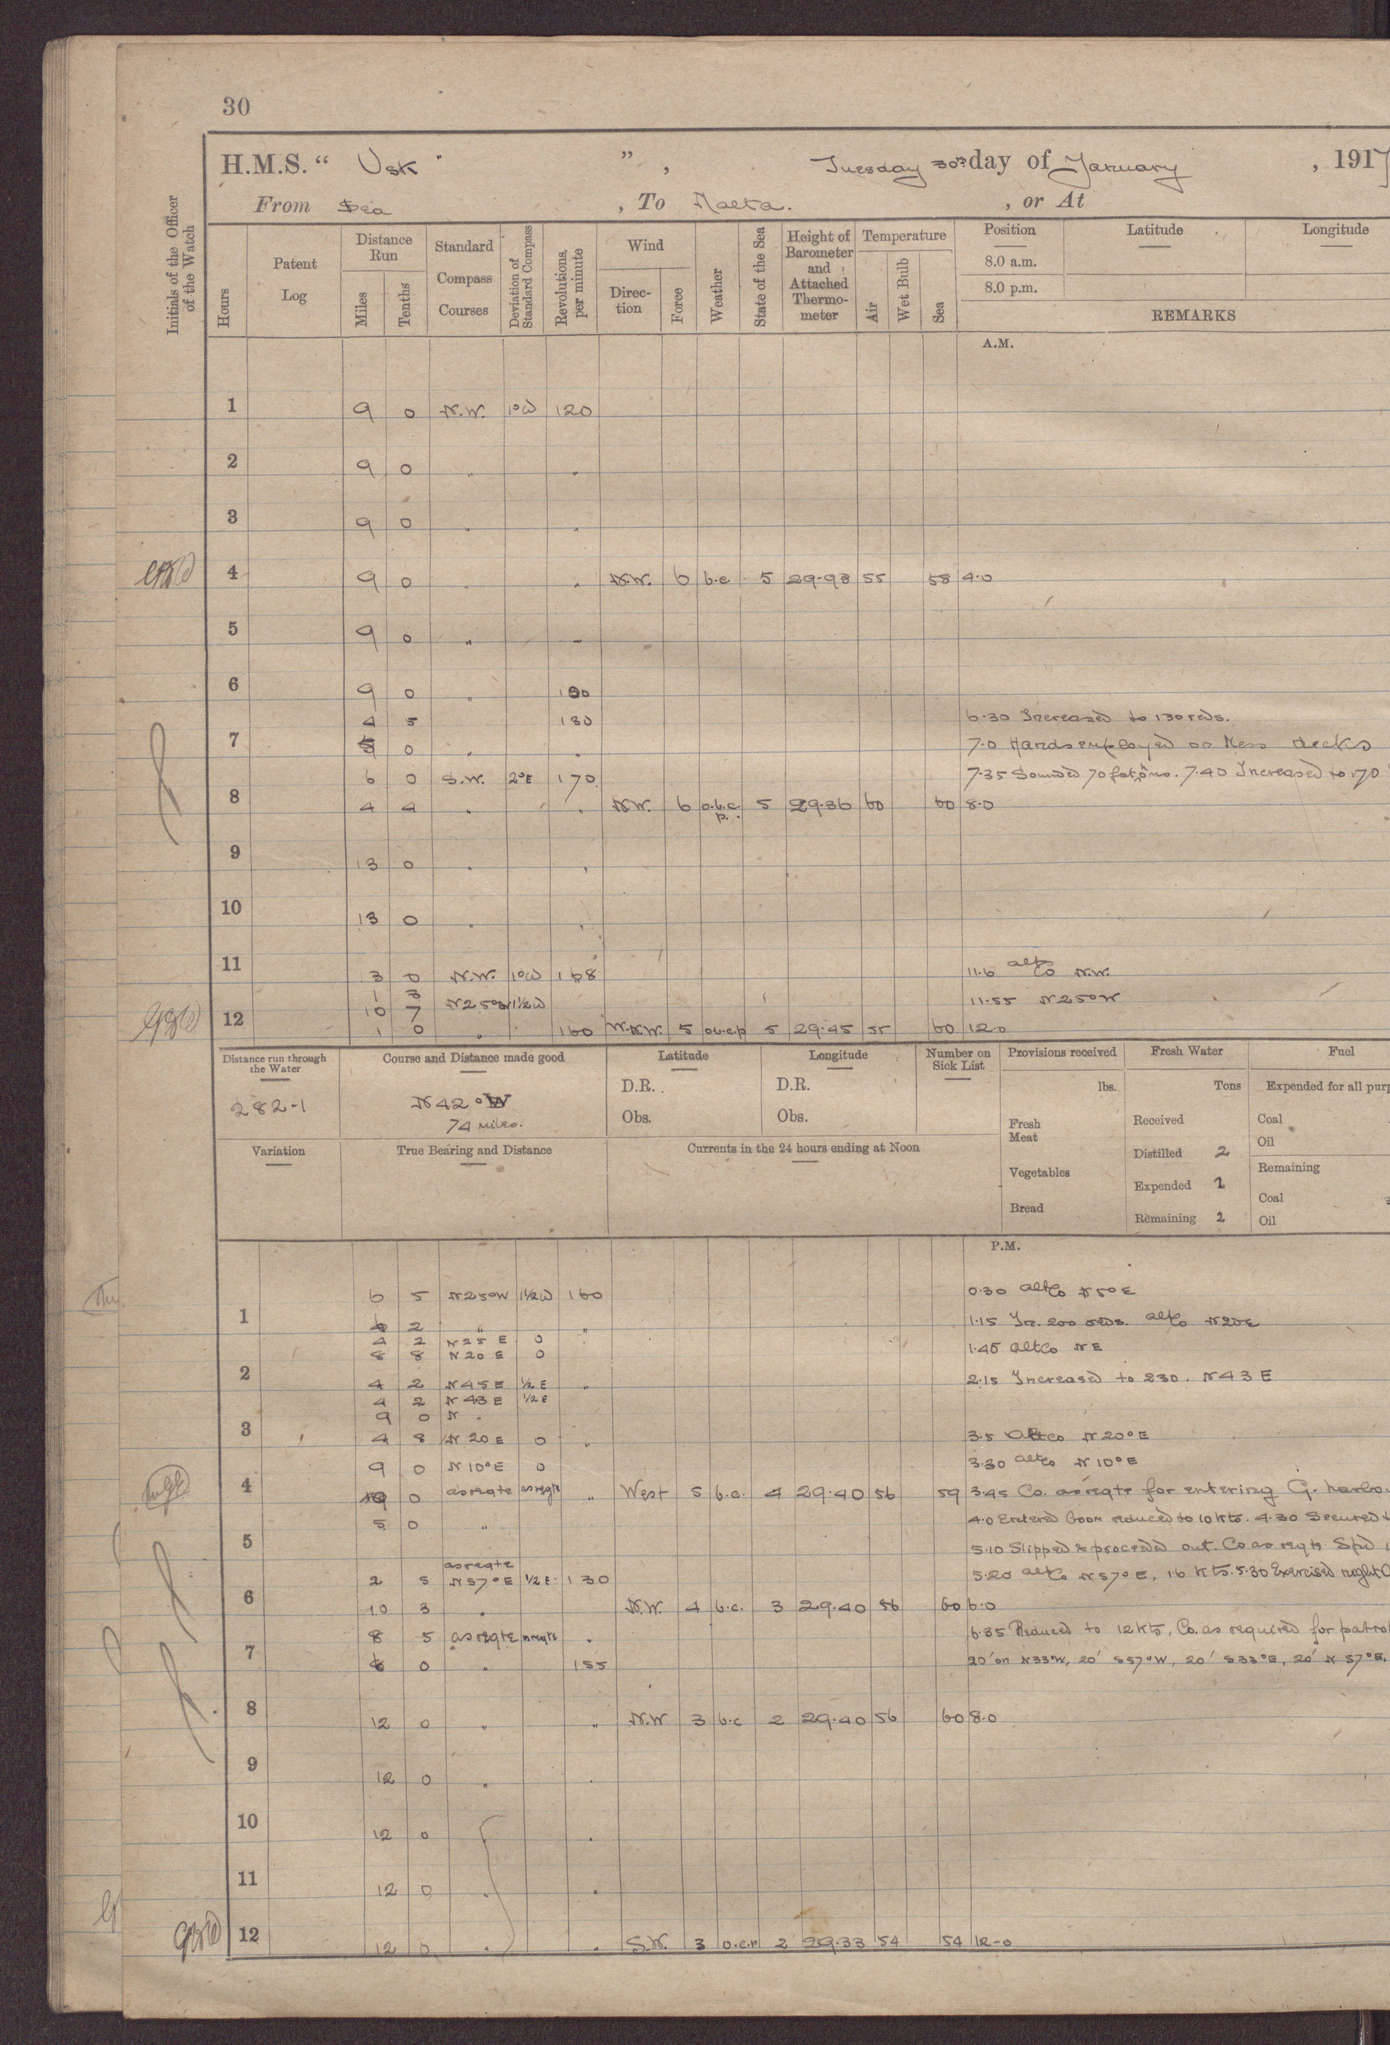 30
H.M.S. “ Usk ” , Tuesday 30th day of January , 1917
From Sea , To Malta. , or At
Initials of the Officer of the Watch
Hours
Patent Log
Distance Run
Miles
Tenths
Standard Compass Courses
Deviation of Standard Compass
Revolutions, per minute
Wind
Direc-tion
Force
Weather
State of the Sea
Height of Barometer and Attached Thermo-meter
Temperature
Air
Wet Bulb
Sea
Position
8.0 a.m.
8.0 p.m.
Latitude
Longitude
REMARKS
A.M.
1 9 0 N.W. 1°W 120
2 9 0 " "
3 9 0 " "
4 9 0 " " N.W. 6 b.c 5 29.93 55 58 4.0
5 9 0 " "
6 9 0 "
4 5 130 6.30 Increased to 130 revs.
7 0 " " 7.0 Hands employed on Mess decks
6 0 S.W. 2°E 170 7.35 Sounded 70 fatms. 7.40 Increased to 170
8 4 4 " " N.W. 6 o.b.c. p. 5 29.36 60 60 8.0
9 13 0 " "
10 13 0 " "
11 3 0 N.W. 1°W 168 11.6 alt Co N.W.
1 3
10 7 N25°W 1½W 11.55 N25°W
12 1 0 " 160 W.N.W. 5 o.b.c.p 5 29.45 55 60 12.0
Distance run through the Water
282.1
Course and Distance made good
N42°W
74 miles.
Latitude
D.R.
Obs.
Longitude
D.R.
Obs.
Number on Sick List
Provisions received
lbs.
Fresh Meat
Vegetables
Bread
Fresh Water
Tons
Received
Distilled 2
Expended 2
Remaining 2
Fuel
Expended for all purp
Coal
Oil
Remaining
Coal
Oil
Variation
True Bearing and Distance
Currents in the 24 hours ending at Noon
P.M.
6 5 N25°W 1½W 160 0.30 alt Co N5°E
1 2 " " 1.15 In. 200 revs. alt Co N20E
4 2 N25 E 0
8 8 N20 E 0 1.45 alt Co NE
2 4 2 N45E ½E " 2.15 Increased to 230. N43E
4 2 N43E ½E
9 0 N "
3 4 8 N20E 0 " 3.5 Alt Co N20°E
9 0 N10°E 0 3.30 alt Co N10°E
4 0 as reqte as reqte " West 5 b.c. 4 29.40 56 59 3.45 Co. as reqte for entering G. harbo
5 0 " 4.0 Entered boom reduced to 10 kts. 4.30 Secured
5 5.10 Slipped & proceeded out. Co as reqte Spd
as reqte
2 5 N57°E ½E 130 5.20 alt Co N57°E, 16 kts. 5.30 Exercised night
6 10 3 " N.W. 4 b.c. 3 29.40 56 60 6.0
8 5 as reqte as reqte " 6.35 Reduced to 12 kts, Co. as required for patrol
7 6 0 " 155 20' on N33°W, 20' S57°W, 20' S33°E, 20' N57°E.
8 12 0 " " N.W 3 b.c 2 29.40 56 60 8.0
9 12 0 " "
10 12 0 "
11 12 0 " "
12 12 0 " " S.W. 3 o.c.r 2 29.33 54 54 12.0